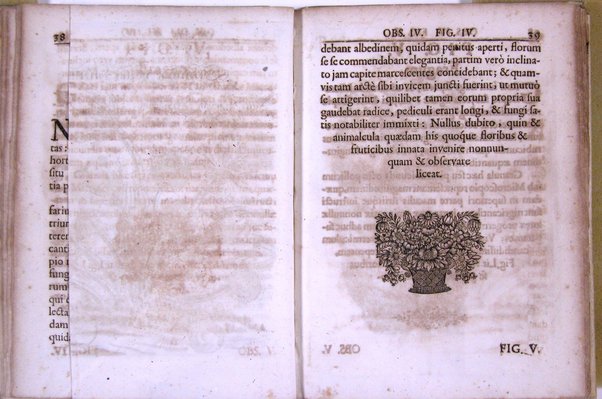 38
N
tas :
hort
situ
tia p
farin
trium
teren
canc
pio n
fung
rum
qui
lecta
dam
quid
OBS. IV. FIG. IV. 39
debant albedinem, quidam penitus aperti, florum
se se commendabant elegantia, partim verò inclina-
to jam capite marcescentes concidebant; & quam-
vis tam arctè sibi invicem juncti fuerint, ut mutuò
se attigerint, quilibet tamen eorum propria sua
gaudebat radice, pediculi erant longi, & fungi sa-
tis notabiliter immixti: Nullus dubito, quin &
animalcula quædam his quoque floribus &
fruticibus innata invenire nonnun-
quam & observare
liceat.
FIG. V.